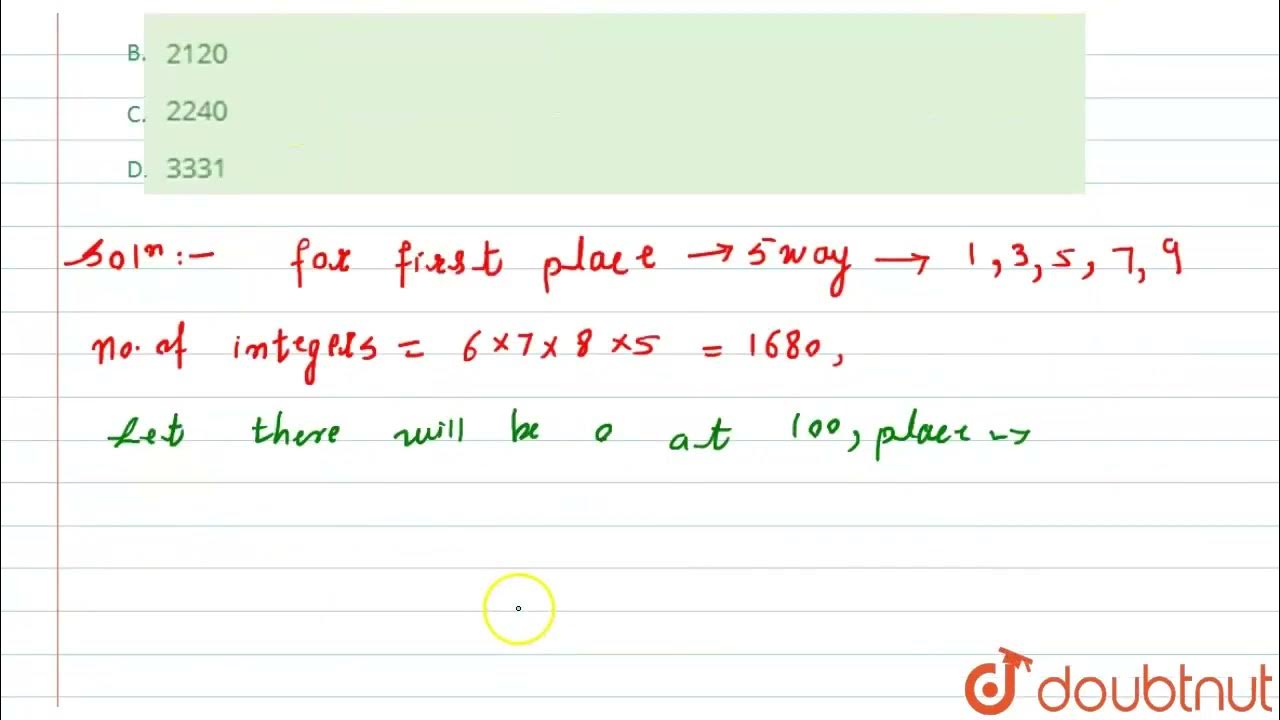 B. 2120
C. 2240
D. 3331
Solⁿ :- for first place → 5 way → 1, 3, 5, 7, 9
no. of integers = 6 × 7 × 8 × 5 = 1680,
Let there will be 0 at 100, place →
doubtnut